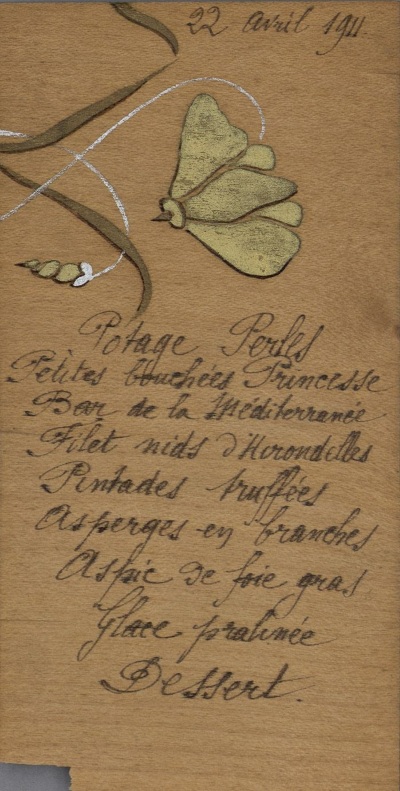 22 avril 1911.
Potage Perles
Petites bouchées Princesse
Bar de la Méditerranée
Filet nids d'Hirondelles
Pintades truffées
Asperges en branches
Aspic de foie gras
Glace pralinée
Dessert.